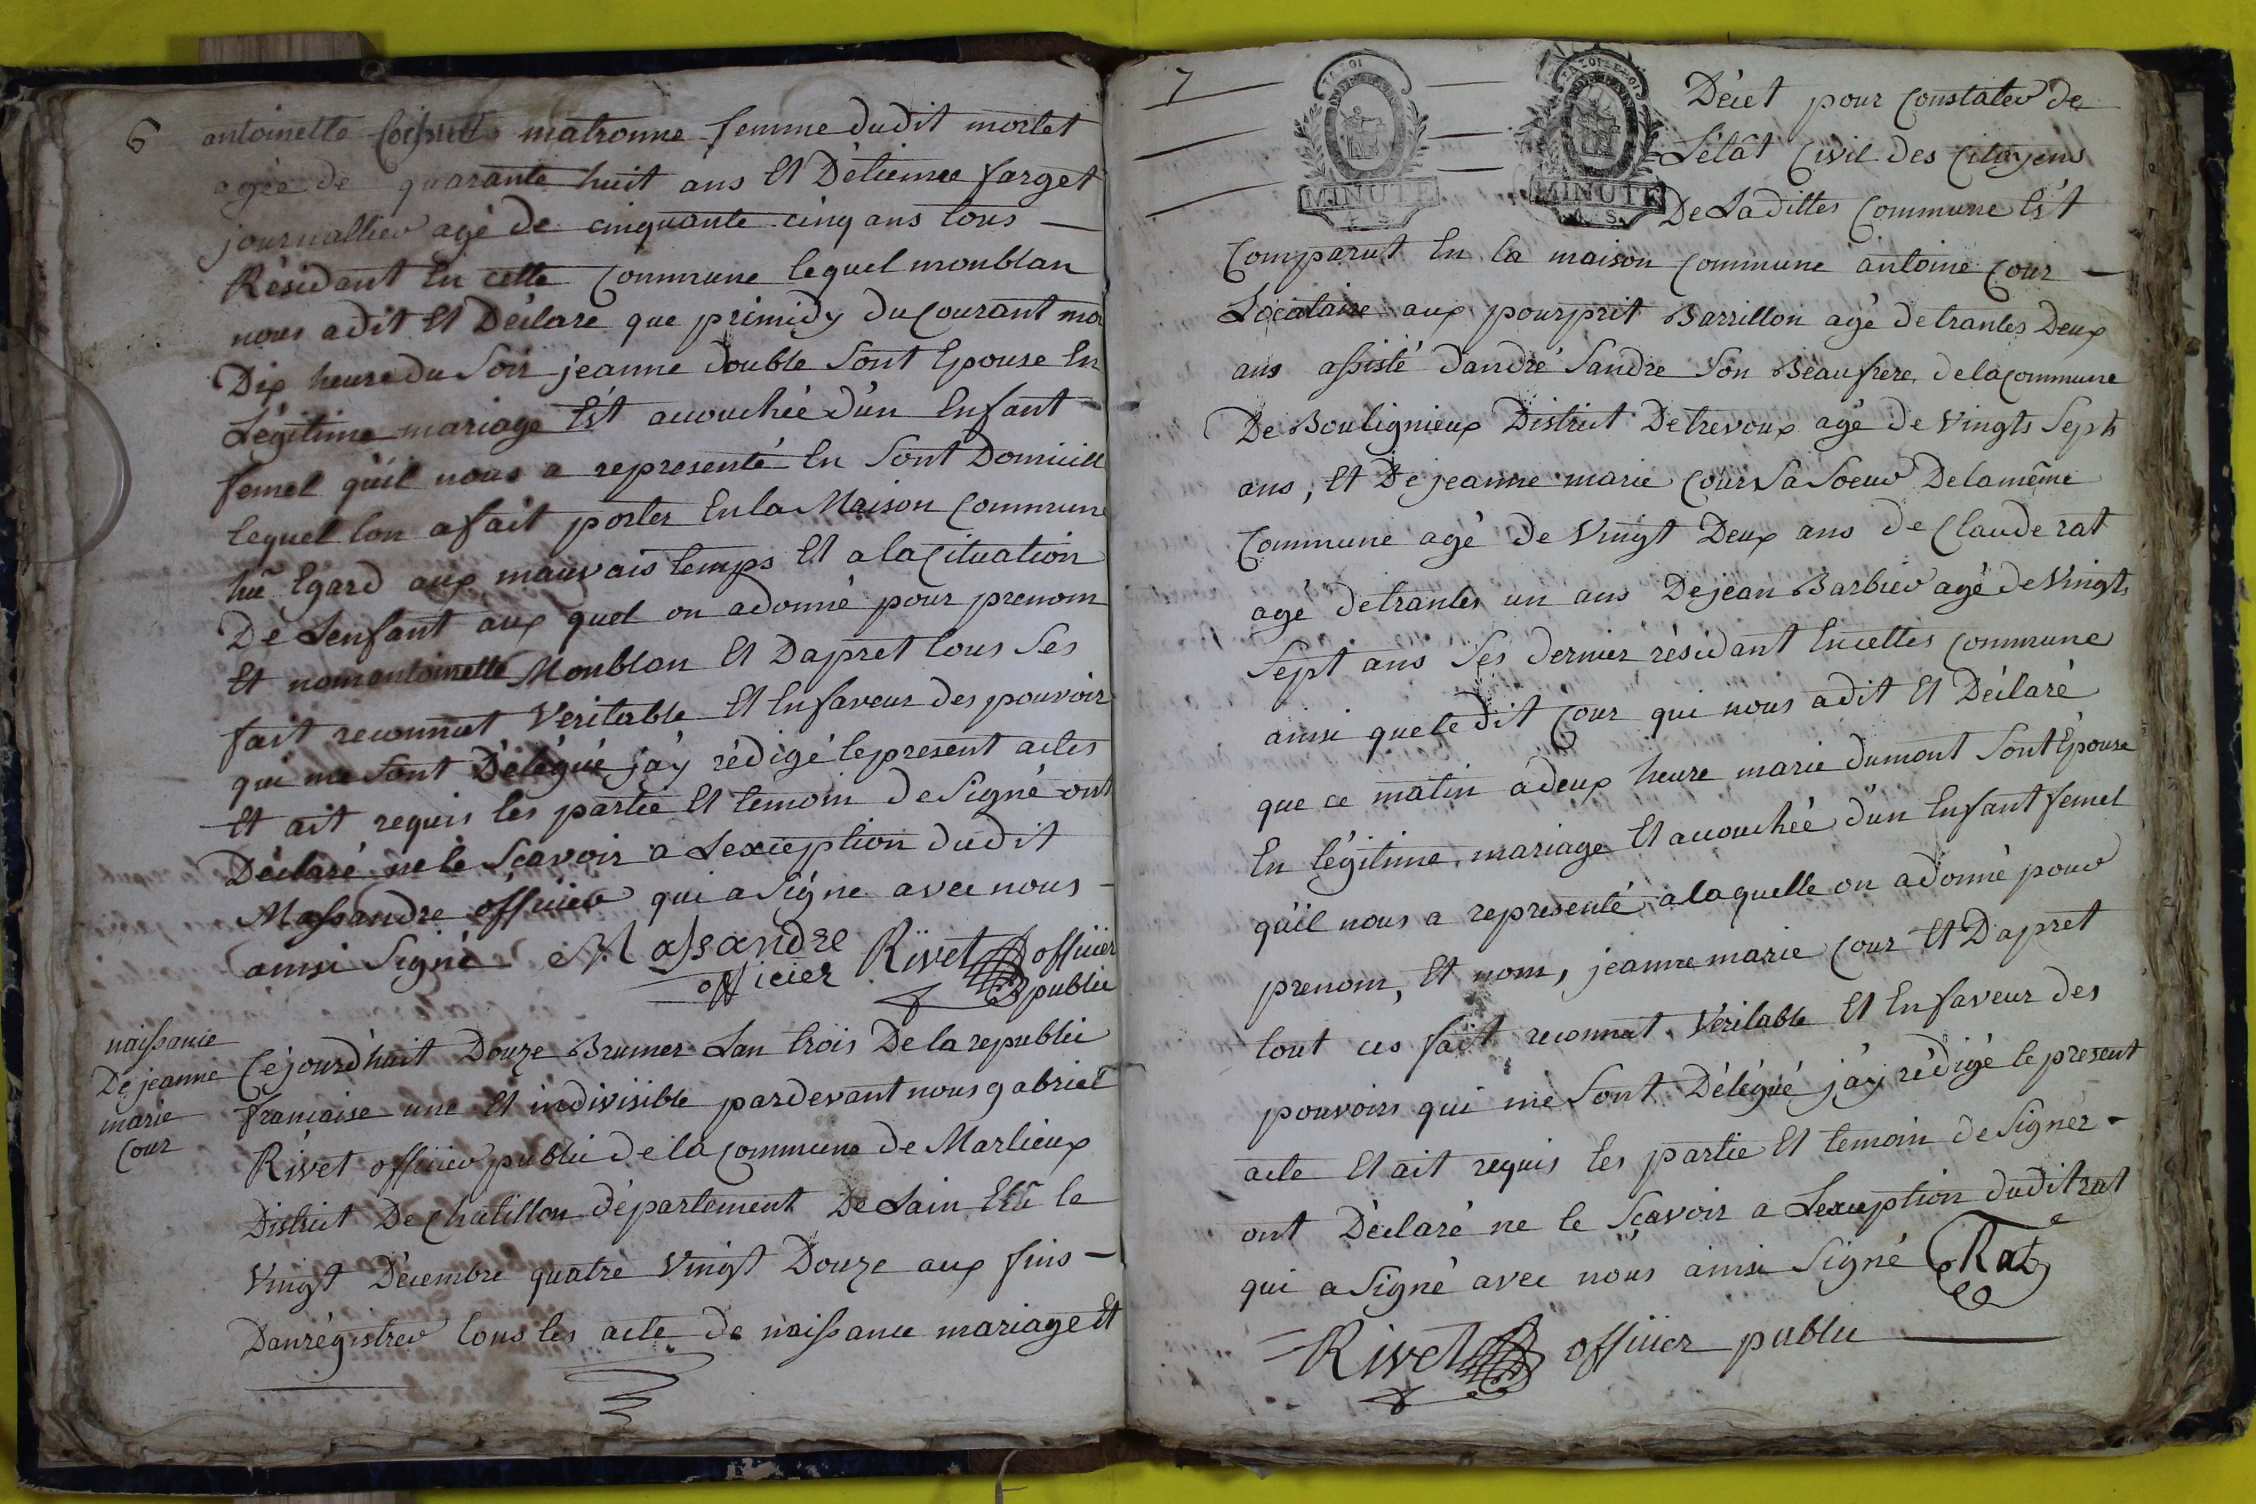 6
antoinette matronne femme dudit mortet
agée de quarante huit ans Et Détienne farget
journallier agé de cinquante cinq ans tous
Résidant En cette Commune lequel monblan
nous a dit Et Déclaré que primidy du courant moi
Dix heure du Soir jeanne double Sont Epouse En
Légitime mariage Est accouchée d'un Enfant
femel qu'il nous a representé En Sont Domicill
lequel lon a fait porter En la Maison Commune
hû Egard aux mauvais temps Et a la Cituation
De Lenfant aux quel on a donné pour prenom
Et nom antoinette Monblan Et Dapret tous Ses
fait reconnut Veritable Et En faveur des pouvoir
qui me sont Délégué j'ay rédigé le present actes
Et ait requis les partie Et temoin de Signé ont
Déclaré ne le Sçavoir a Lexception dudit
Massandre officier qui a Signé avec nous
ainsi Signé Massandre Rivet officier
officier public
naissance
De jeanne
marie
Cour
Cejourd'huit Douze Brumer Lan trois De la republic
francaise une Et indivisible pardevant nous gabriel
Rivet officier public de la Commune de Marlieux
District De Chatillon département De Lain Elû le
Vingt Décembre quatre Vingt Douze aux fins
Danrégistrer tous les acte de naissance mariage Et
7
TAOI
MINUTE
MINUTE
Décet pour Constater de
L'état Civil des Citoyens
De Ladittes Commune Est
Comparut En la maison Commune antoine Cour
Locataire aux pourprit Barrillon agé de trantes Deux
ans assisté dandré Sandre Son Beaufrere de la commune
De Boulignieux District De trevoux agé de Vingts Septs
ans, Et De jeanne marie Cour Sa Soeur De la même
Commune agé de Vingt Deux ans de Claude rat
agé de trantes un ans De jean Barbier agé de Vingts
Sept ans Ses dernier résidant En cettes Commune
ainsi que le dit Cour qui nous a dit Et Déclaré
que ce matin a deux heure marie dumont Sont Epouse
En légitime mariage Et accouchée d'un Enfant femel
qu'il nous a representé a laquelle on a donné pour
prenom, Et nom, jeanne marie Cour Et Dapret
tout ces fait reconnut Véritable Et En faveur des
pouvoirs qui me Sont Délégué j'ay rédigé le present
acte Et ait requis les partie Et temoin de Signér
ont Déclaré ne le Sçavoir a Lexception dudit rat
qui a Signé avec nous ainsi Signé Rat
Rivet officier public